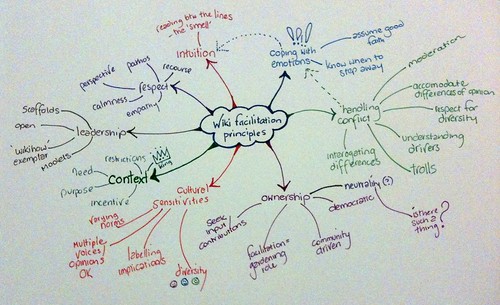 reading btw the lines
- the 'smell'
intuition
coping with
emotions
assume good
faith
know when to
step away
perspective
pathos
recourse
respect
calmness
empathy
Wiki facilitation
principles
handling
conflict
moderation
accomodate
differences of opinion
respect for
diversity
understanding
drivers
trolls
interrogating
differences
scaffolds
open
'wikihow'
exemplar
models
leadership
restrictions
need
purpose
incentive
Context
king
Cultural
Sensitivities
varying
norms
multiple
voices
opinions
OK
labelling
implications
diversity
ownership
seek
input/
contributions
facilitation =
gardening
role
community
driven
democratic
neutrality ?
is there
such a
thing?